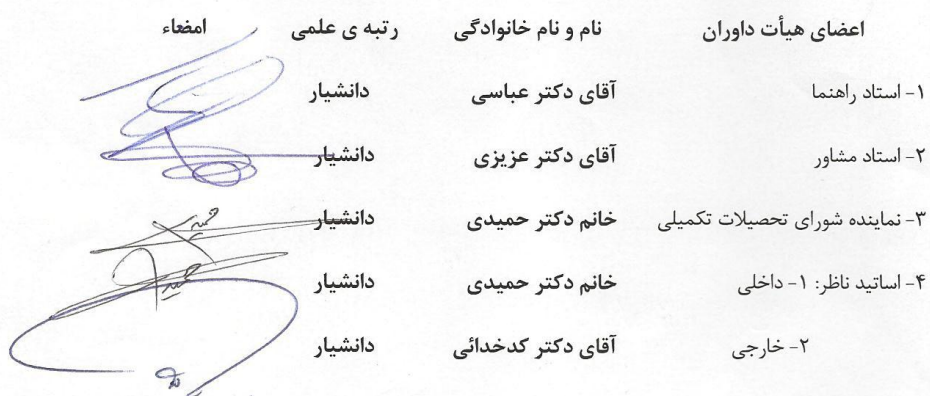 اعضای هیأت داوران نام و نام خانوادگی رتبه ی علمی امضاء
۱- استاد راهنما آقای دکتر عباسی دانشیار
۲- استاد مشاور آقای دکتر عزیزی دانشیار
۳- نماینده شورای تحصیلات تکمیلی خانم دکتر حمیدی دانشیار
۴- اساتید ناظر: ۱- داخلی خانم دکتر حمیدی دانشیار
۲- خارجی آقای دکتر کدخدائی دانشیار